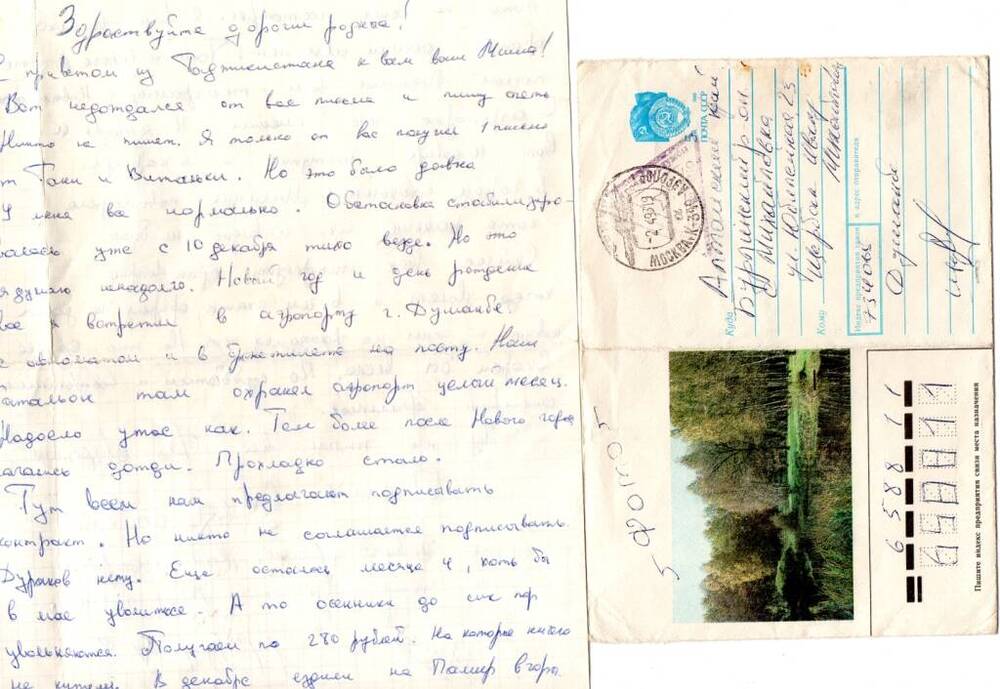 Здраствуйте дорогие родные!
С приветом из Таджикистана к вам ваш Миша!
Вот недождался от вас письма и пишу опять
Никто не пишет. Я только от вас получил 1 письмо
от Тани и Витаньки. Но это было давно
У меня все нормально. Обстановка стабилизиро-
валась уже с 10 декабря тихо везде. Но это
я думаю ненадолго. Новый год и день рождения
все я встретил в аэропорту г. Душанбе
с автоматом и в бронежилете на посту. Наш
батальон там охранял аэропорт целый месяц.
Надоело ужас как. Тем более после Нового года
начались дожди. Прохладно стало.
Тут всем нам предлагают подписывать
контракт. Но никто не соглашается подписывать.
Дураков нету. Еще осталось месяца 4, хоть бы
в мае уволиться. А то осенники до сих пор
увольняются. Получаем по 280 рублей. На которые ничего
не купишь. В декабре ездили на Памир в горы.
ПОЧТА СССР
МОСКВА
Куда Алтайский край
Бурлинский р-он
с Михайловка
ул. Юбилейная 23
Кому Щербак Ивану
Михайловичу
Индекс предприятия связи и адрес отправителя
734065
Душанбе
658811
Пишите индекс предприятия связи места назначения
5 фото 5